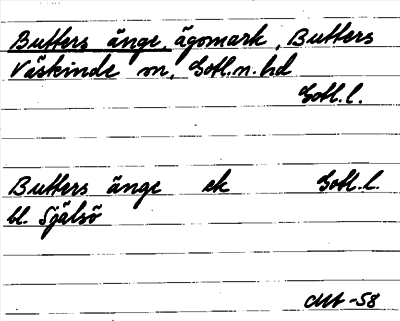 Butters änge, ägomark, Butters
Väskinde sn, Gotl.n.hd
Gotl.l.
Butters änge ek Gotl.l.
bl. Själsö
-58